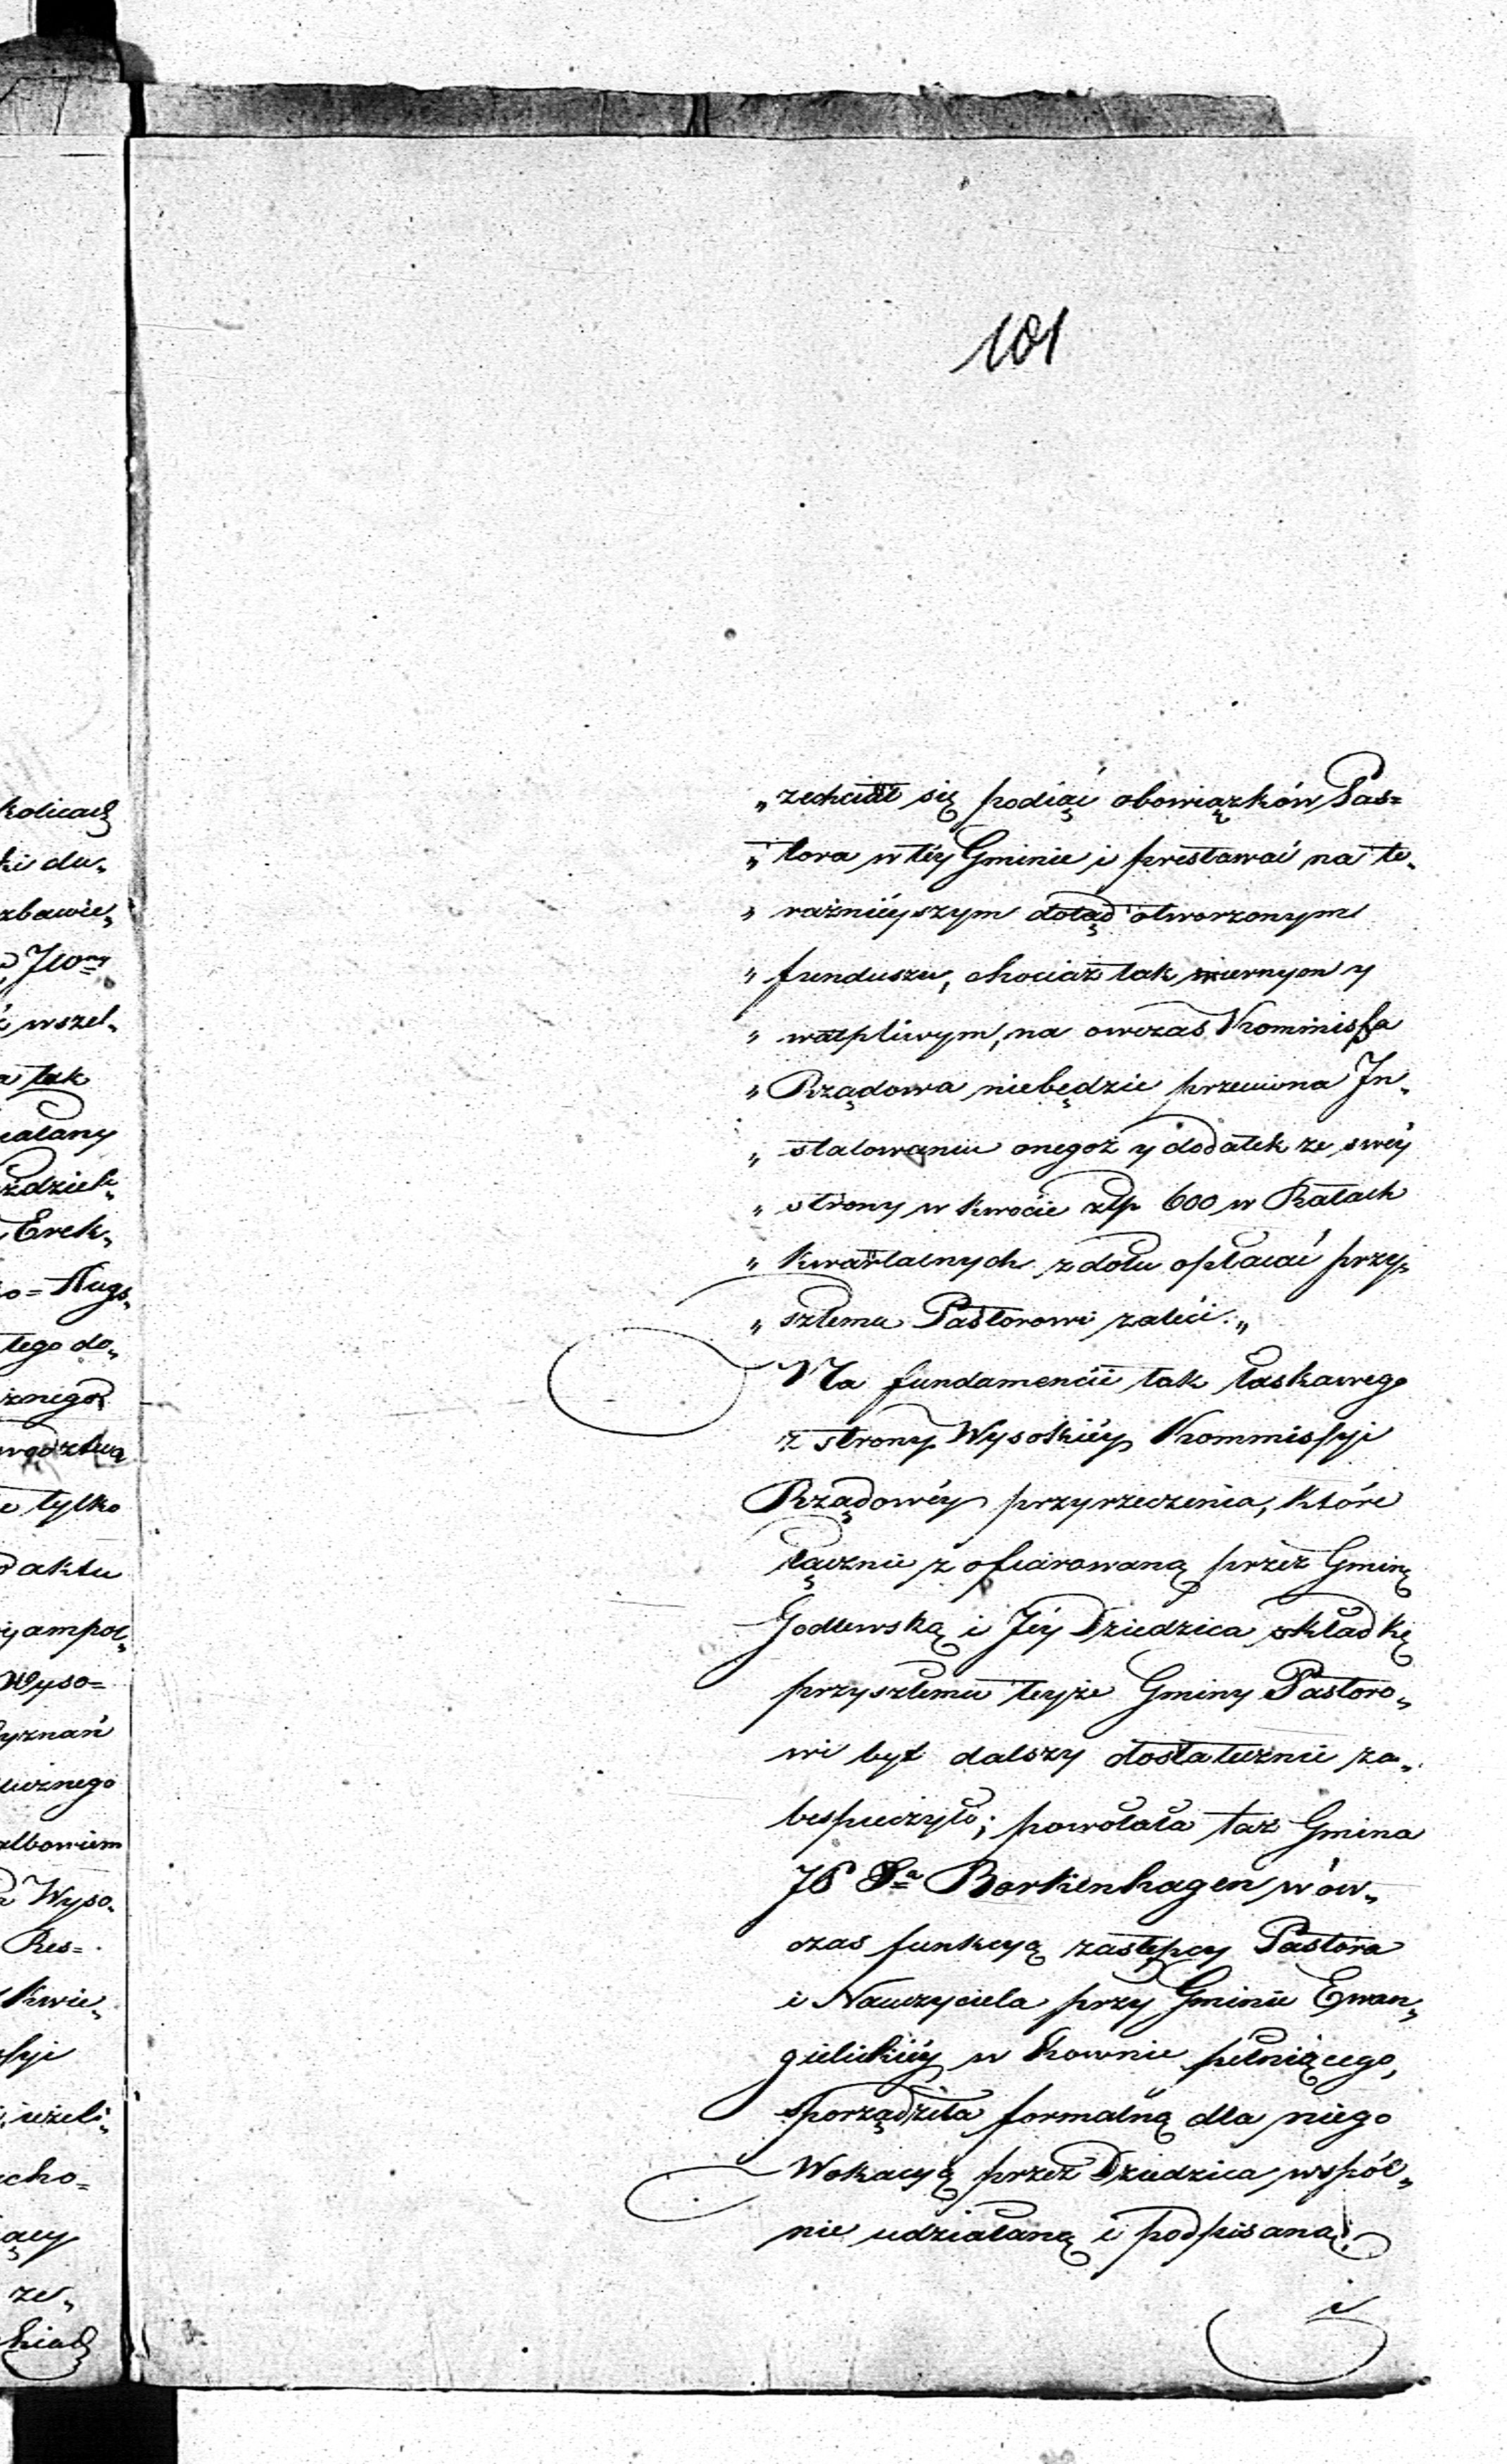 101
„ zechciał się podiąć obowiązków Pas=
„ tora w téy Gminie i przestawać na te„
„ raźnieyszym dotąd otworzonym
„ funduszu, chociaż tak miernym y
„ wątpliwym, na owczas Kommissya
„ Rządowa niebędzie przeciwna In„
„ stalowaniu onegoż y dodatek ze swéy
„ strony w kwocie złp 600 w Ratach
„ kwartalnych z dołu opłacać przy„
„ szłemu Pastorowi zaleci.„
Na fundamencie tak łaskawego
z strony Wysokiéy Kommissyi
Rządowéy przyrzeczenia, które
łącznie z ofiarowaną przez Gminę
Godlewską i Jéy Dziedzica składkę
przyszłemu teyże Gminy Pastoro„
wi byt dalszy dostatecznie za„
bespieczyło; powołała taż Gmina
Borkenhagen wów„
czas funkcyą zastępcy Pastora
i Nauczyciela przy Gminie Ewan„
gielickiéy w Kownie pełniącego,
sporządziła formalną dla niego
Wokacyą przez Dziedzica wspól„
nie udziałaną i podpisaną,
i
kolicach
ki du„
zbawie„
JWny
wszel„
tak
Erek„
o=Augs„
tego do„
tylko
aktu
Wyso=
yznań
licznego
albowiem
Wyso„
Res=
Kwie„
ieżeli„
echo=
ący
ze„